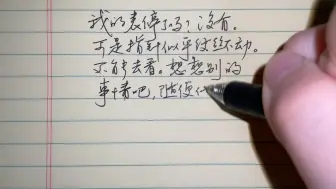 我的表停了吗?没有。
可是指针似乎纹丝不动。
不能去看。想想别的
事情吧,随便什